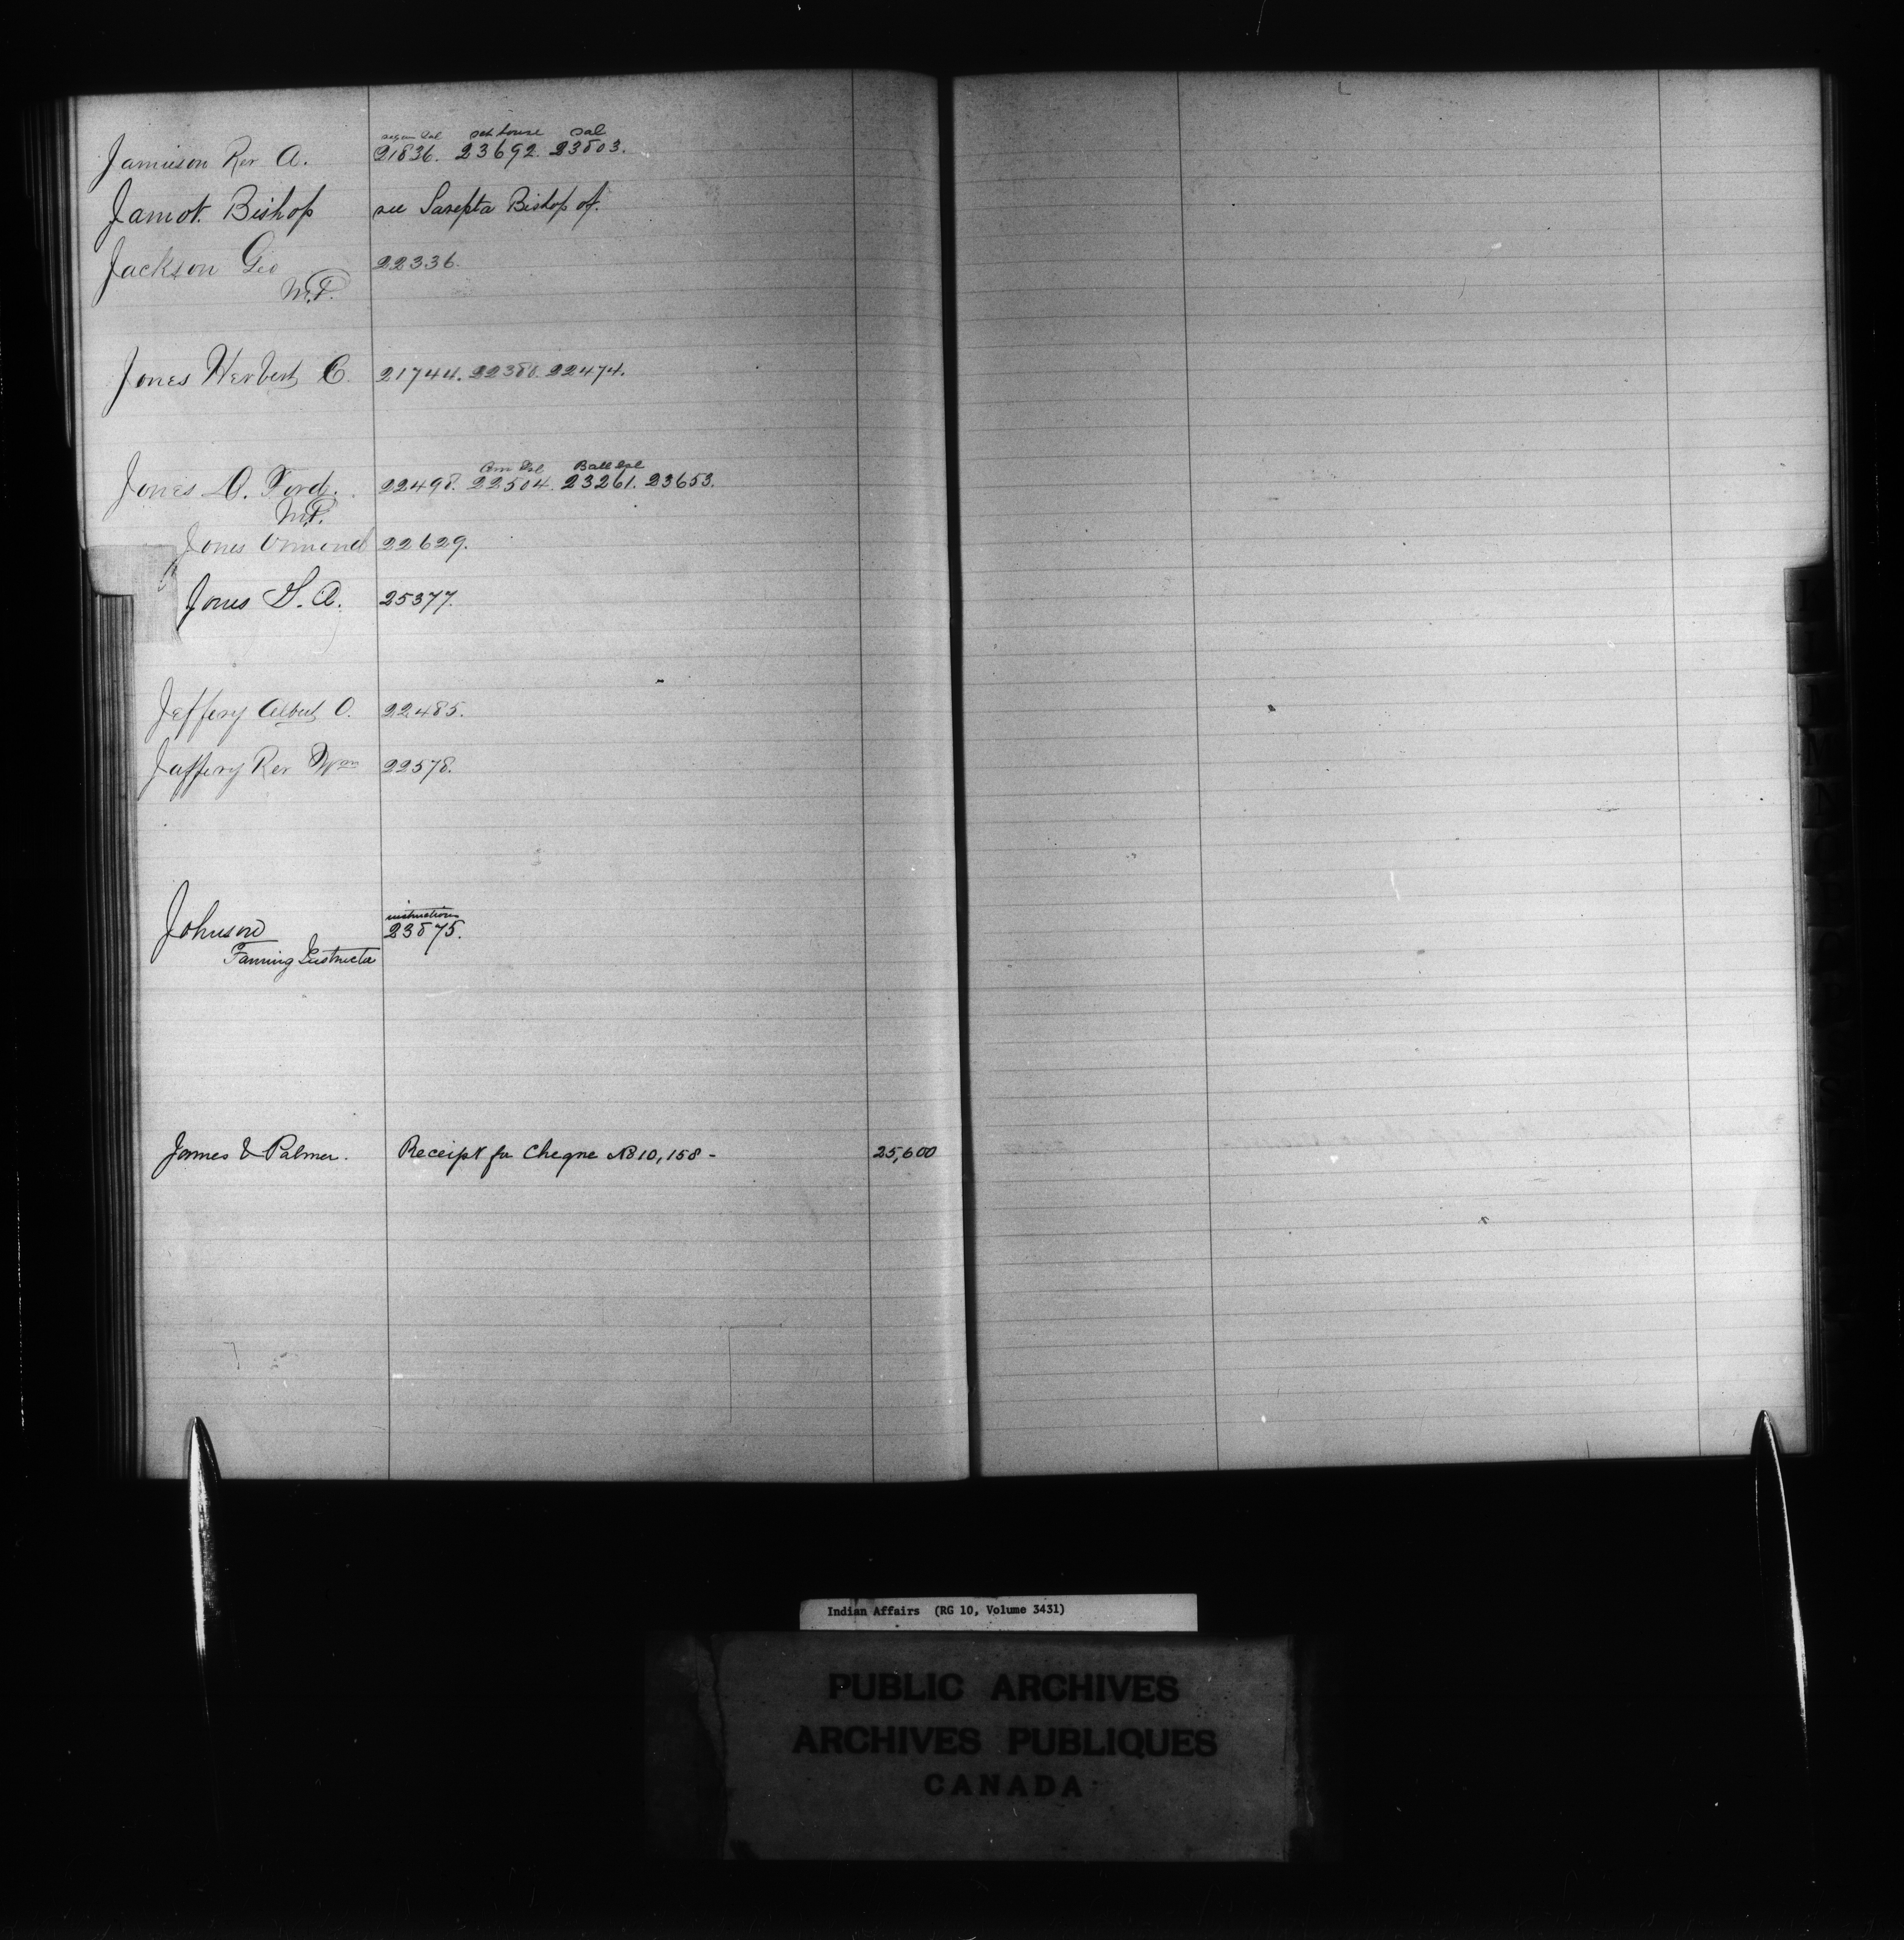 Sch house Sal
Jamieson Rev A. 21836. 23692. 23803.
Jamot Bishop see Sarepta Bishop of.
Jackson Geo 22336.
M.P.
Jones Herbert C. 21744. 22388. 22474.
Ball Sal
Jones D. Ford. 22498. 22504. 23261. 23653.
M.P.
Jones Ormond 22629.
Jones S. A. 25377.
Jeffery Albert O. 22485.
Jaffery Rev Wm 22578.
instructions
Johnson 23875.
Farming Instructor
James & Palmer. Receipt for Cheque No 10,158 - 25,600
Indian Affairs (RG 10, Volume 3431)
PUBLIC ARCHIVES
ARCHIVES PUBLIQUES
CANADA